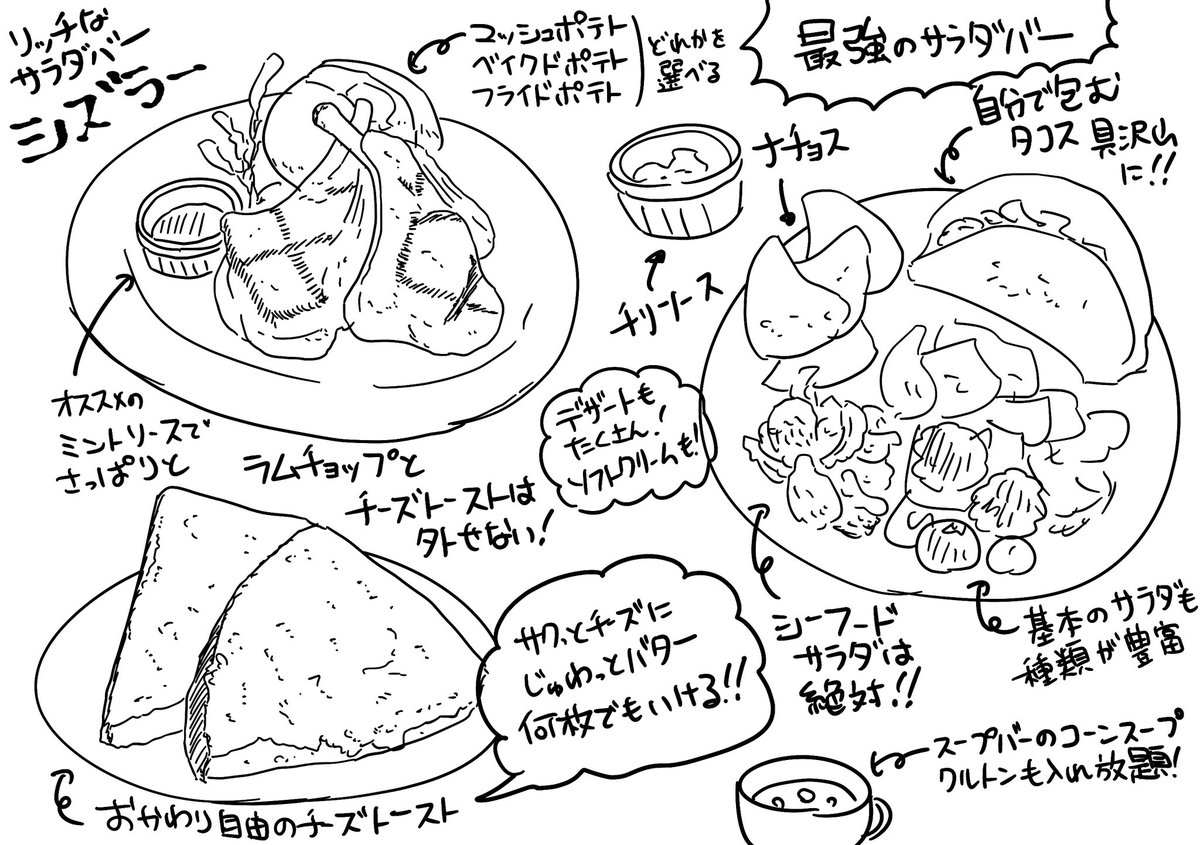 リッチな
サラダバー
シズラー
マッシュポテト
ベイクドポテト
フライドポテト
どれかを
選べる
最強のサラダバー
自分で包む
タコス 具沢山
に!!
ナチョス
チリソース
オススメの
ミントソースで
さっぱりと
ラムチョップと
チーズトーストは
外せない!
デザートも
たくさん!
ソフトクリームも!
サクっとチーズに
じゅわっとバター
何枚でもいける!!
おかわり自由のチーズトースト
シーフード
サラダは
絶対!!
基本のサラダも
種類が豊富
スープバーのコーンスープ
クルトンも入れ放題!